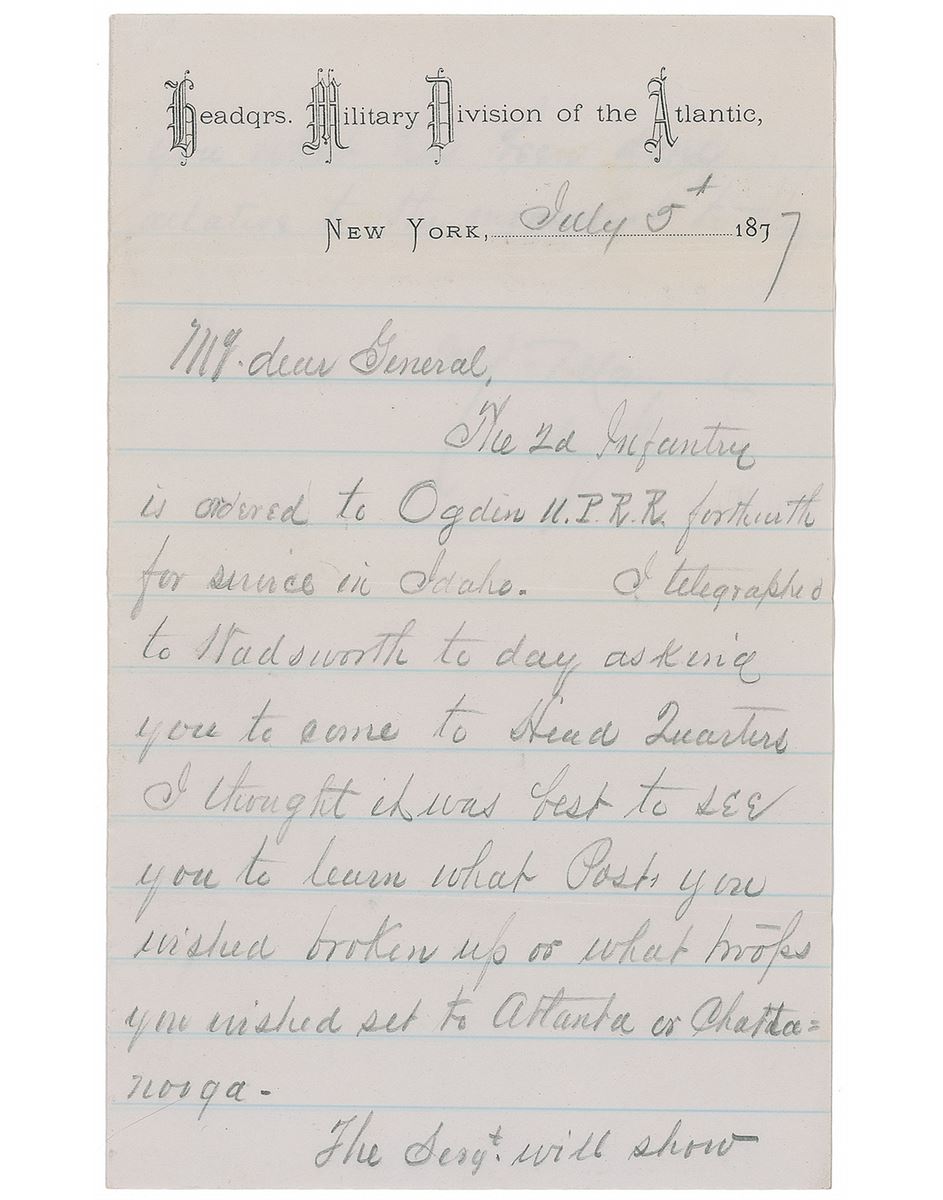 Headqrs. Military Division of the Atlantic,
New York, July 5t 1877
My dear General,
The 2d Infantry
is ordered to Ogden U.P.R.R. forthwith
for service in Idaho. I telegraphed
to Wadsworth to day asking
you to come to Head Quarters
I thought it was best to see
you to learn what Posts you
wished broken up or what troops
you wished set to Atlanta or Chatta=
nooga -
The Sergt. will show